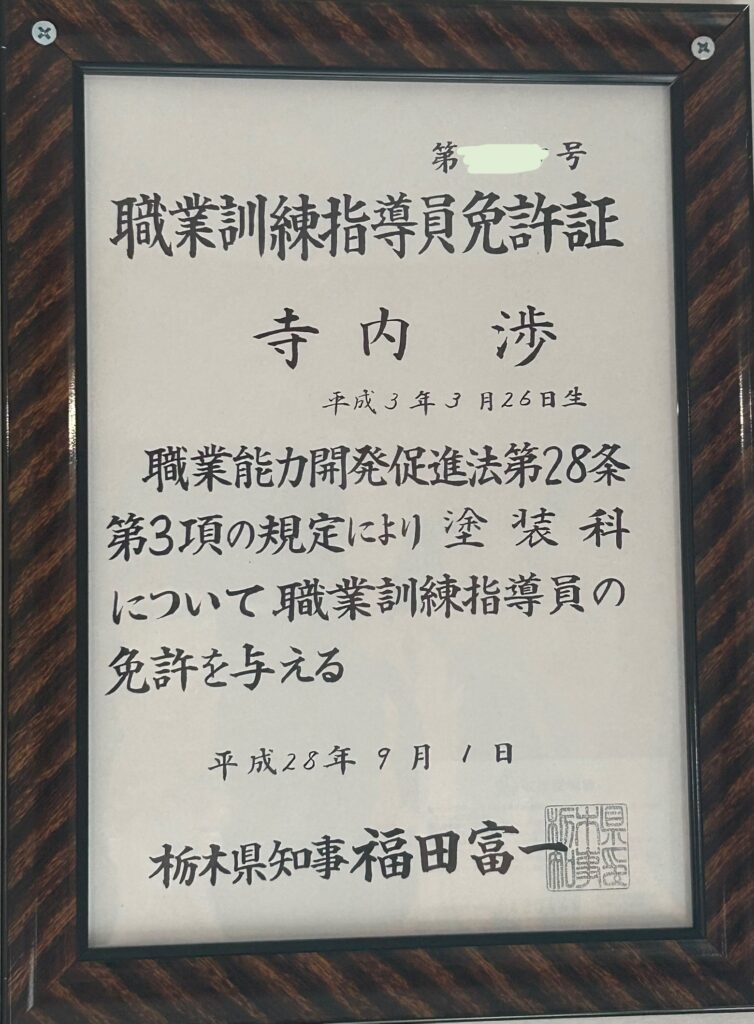 第 号
職業訓練指導員免許証
寺内 渉
平成3年3月26日生
職業能力開発促進法第28条
第3項の規定により 塗装科
について職業訓練指導員の
免許を与える
平成28年9月1日
栃木県知事 福田富一
栃木県
知事